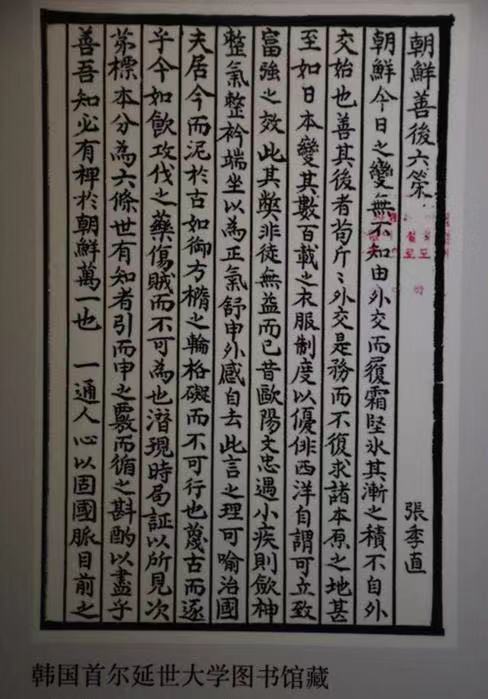 朝鮮善後六策 張季直
朝鮮今日之變無不知由外交而履霜堅氷其漸之積不自外
交始也善其後者苟斤〻外交是務而不復求諸本原之地甚
至如日本變其數百載之衣服制度以優俳西洋自謂可立致
富強之效此其獘非徒無益而已昔歐陽文忠遇小疾則斂神
整氣整衿端坐以為正氣舒申外感自去此言之理可喻治國
夫居今而泥於古如御方橢之輪格礙而不可行也蔑古而逐
乎今如飲攻伐之藥傷賊而不可為也潜現時局証以所見次
苐標本分為六條世有知者引而申之覈而循之斟酌以盡乎
善吾知必有裨於朝鮮萬一也 一通人心以固國脈目前之
韩国首尔延世大学图书馆藏